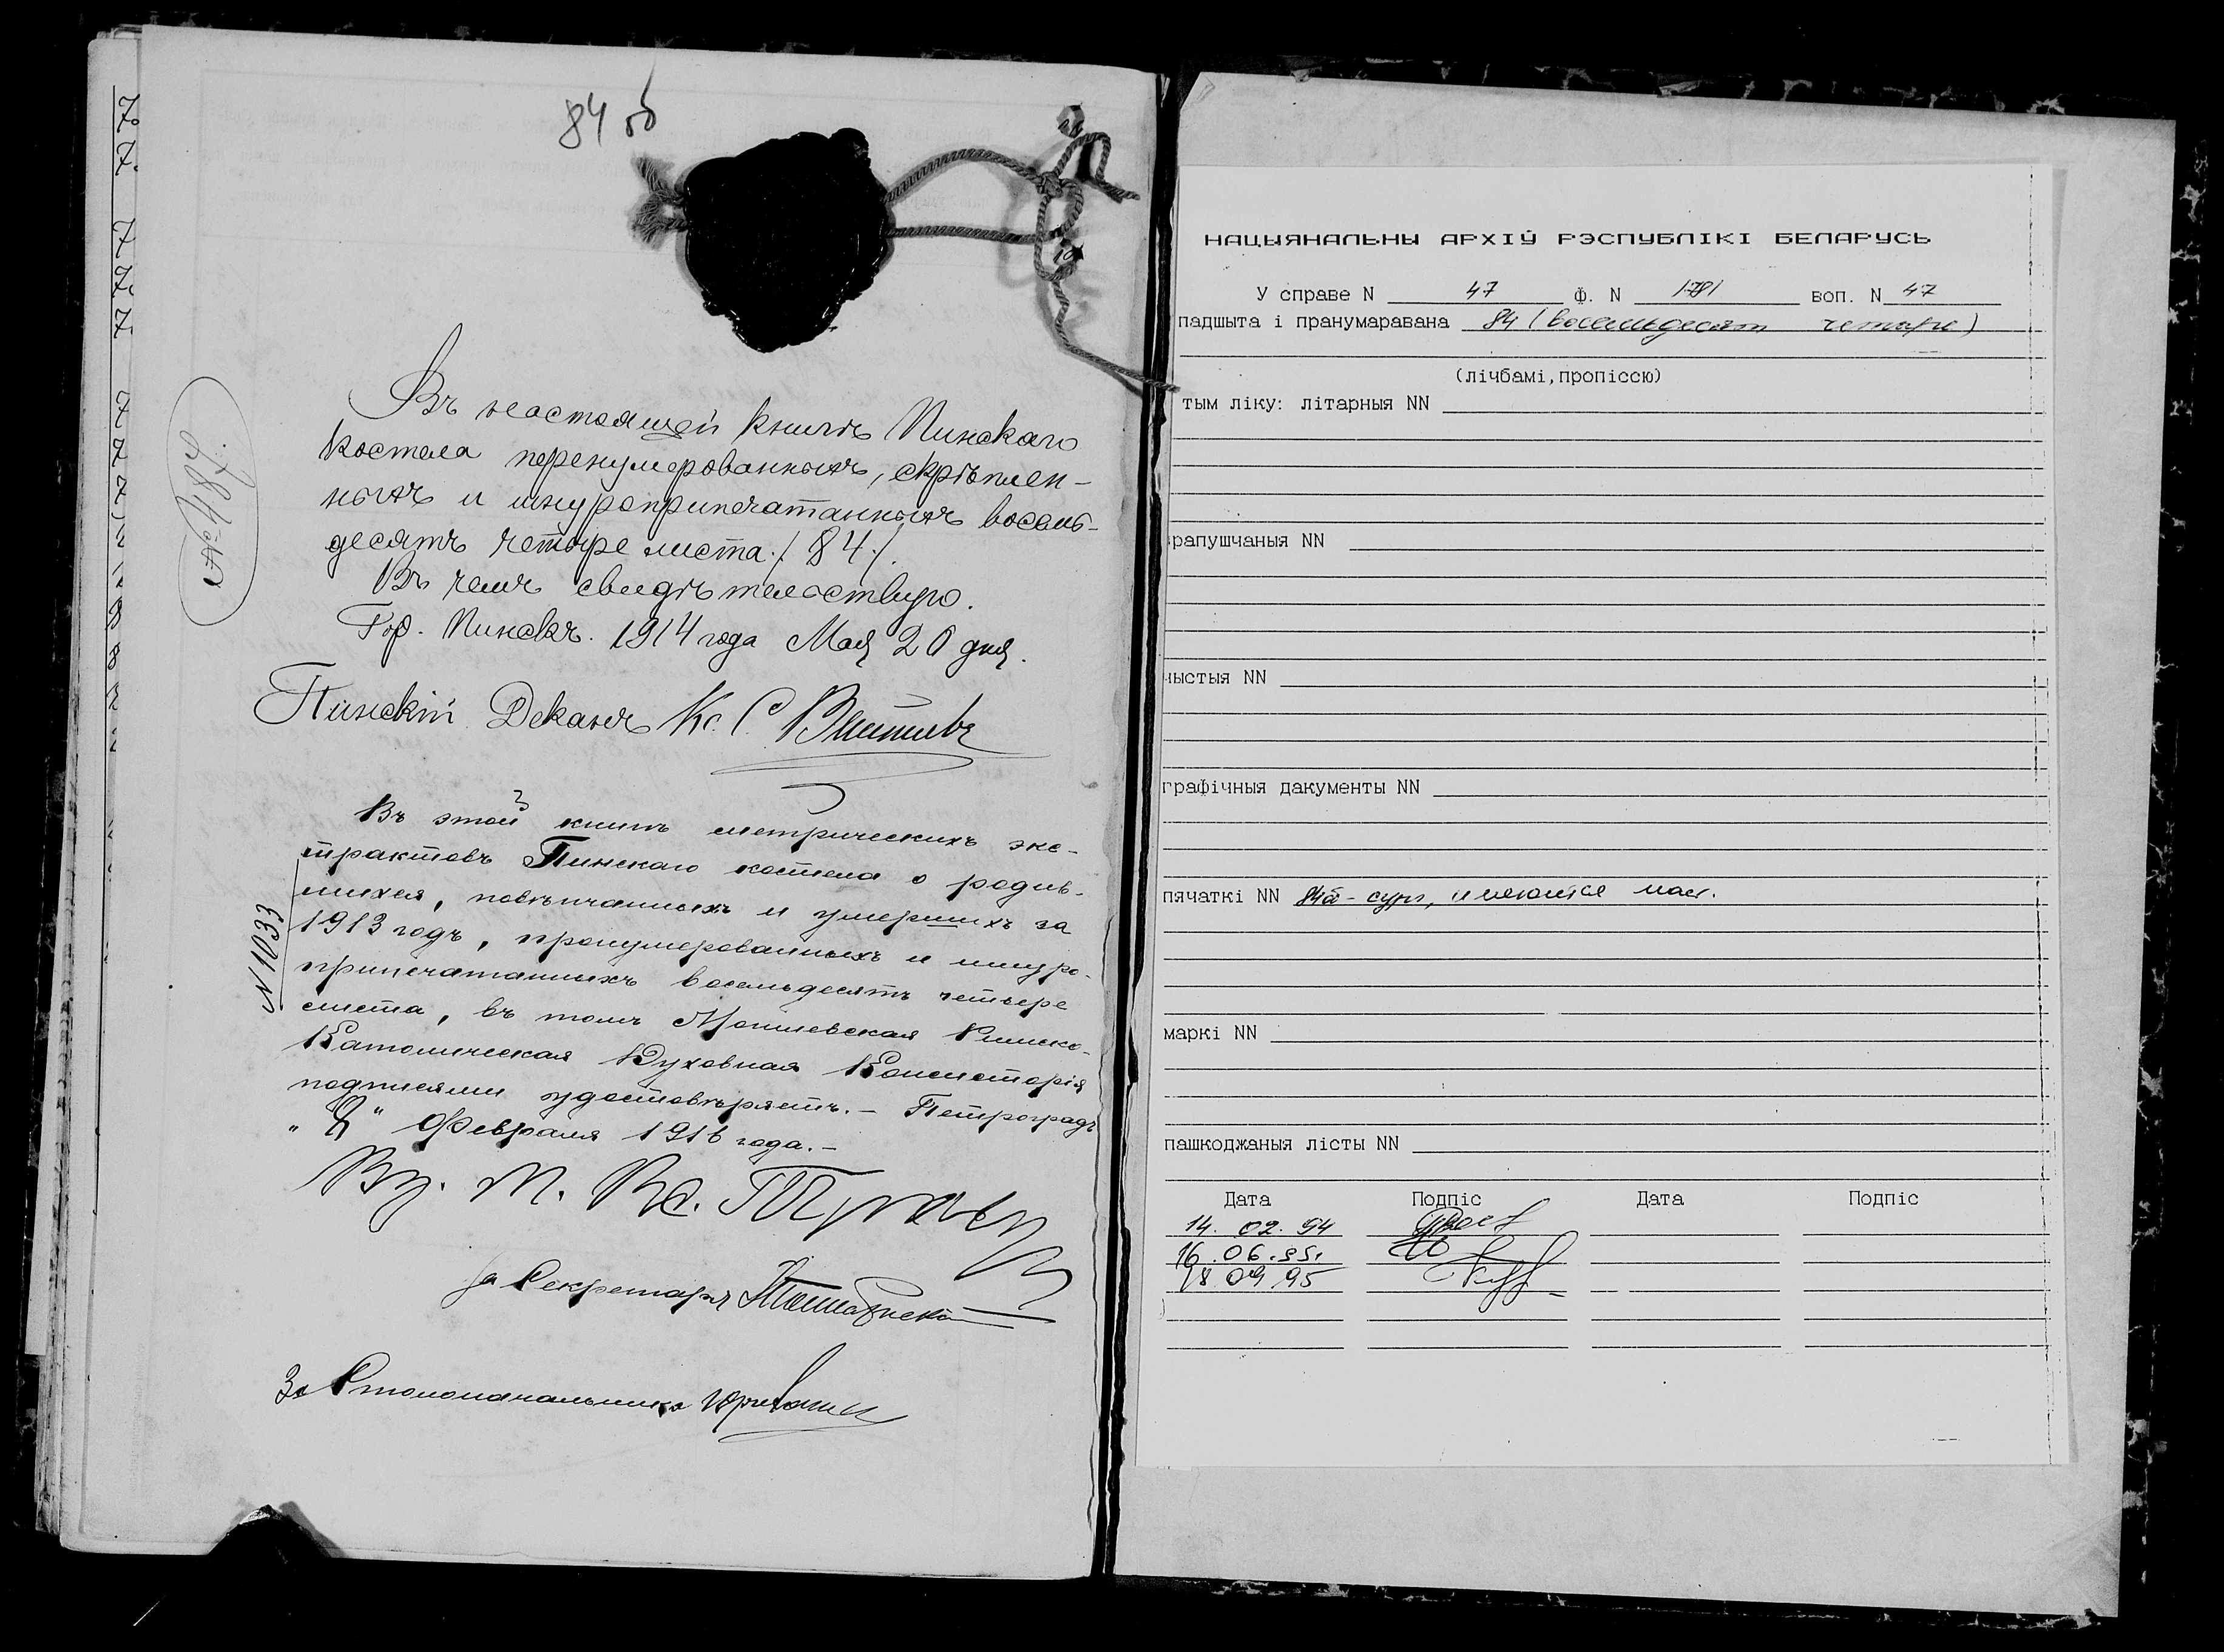 84 об
Въ настоящей книгѣ Пинскаго
костела перенумерованныхъ, скрѣплен-
ныхъ и шнуроприпечатанныхъ восемь-
десятъ четыре листа. / 84 /.
Въ чемъ свидѣтельствую.
Гор. Пинскъ. 1914 года Мая 20 дня.
Пинскій Деканъ Кс.
Въ этой книгѣ метрическихъ экс-
трактовъ Пинскаго костела о родив-
шихся, повѣнчанныхъ и умершихъ за
1913 годъ, пронумерованныхъ и шнуро-
припечатанныхъ восемьдесятъ четыре
листа, въ томъ Могилевская Римско-
Католическая Духовная Консисторія
подписями удостовѣряетъ. — Петроградъ
Февраля 1916 года. —
N 1033
За Секретаря
За Столоначальника
НАЦЫЯНАЛЬНЫ АРХІЎ РЭСПУБЛІКІ БЕЛАРУСЬ
У справе N 47 ф. N 1781 воп. N 47
падшыта і пранумаравана 84 (восемьдесят четыре)
(лічбамі,пропіссю)
тым ліку: літарныя NN
прапушчаныя NN
чыстыя NN
графічныя дакументы NN
пячаткі NN 84об - сург,
маркі NN
пашкоджаныя лісты NN
Дата Подпіс Дата Подпіс
14. 02. 94
16. 06. 95.
18 09 95